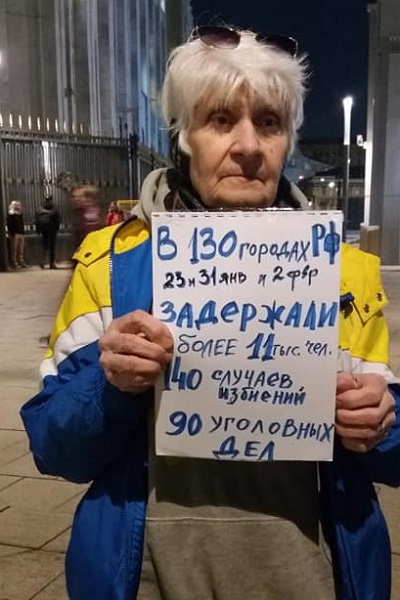 В 130 городах РФ
23 и 31 янв и 2 фвр
ЗАДЕРЖАЛИ
БОЛЕЕ 11 тыс. чел.
140 СЛУЧАЕВ
ИЗБИЕНИЙ
90 УГОЛОВНЫХ
ДЕЛ